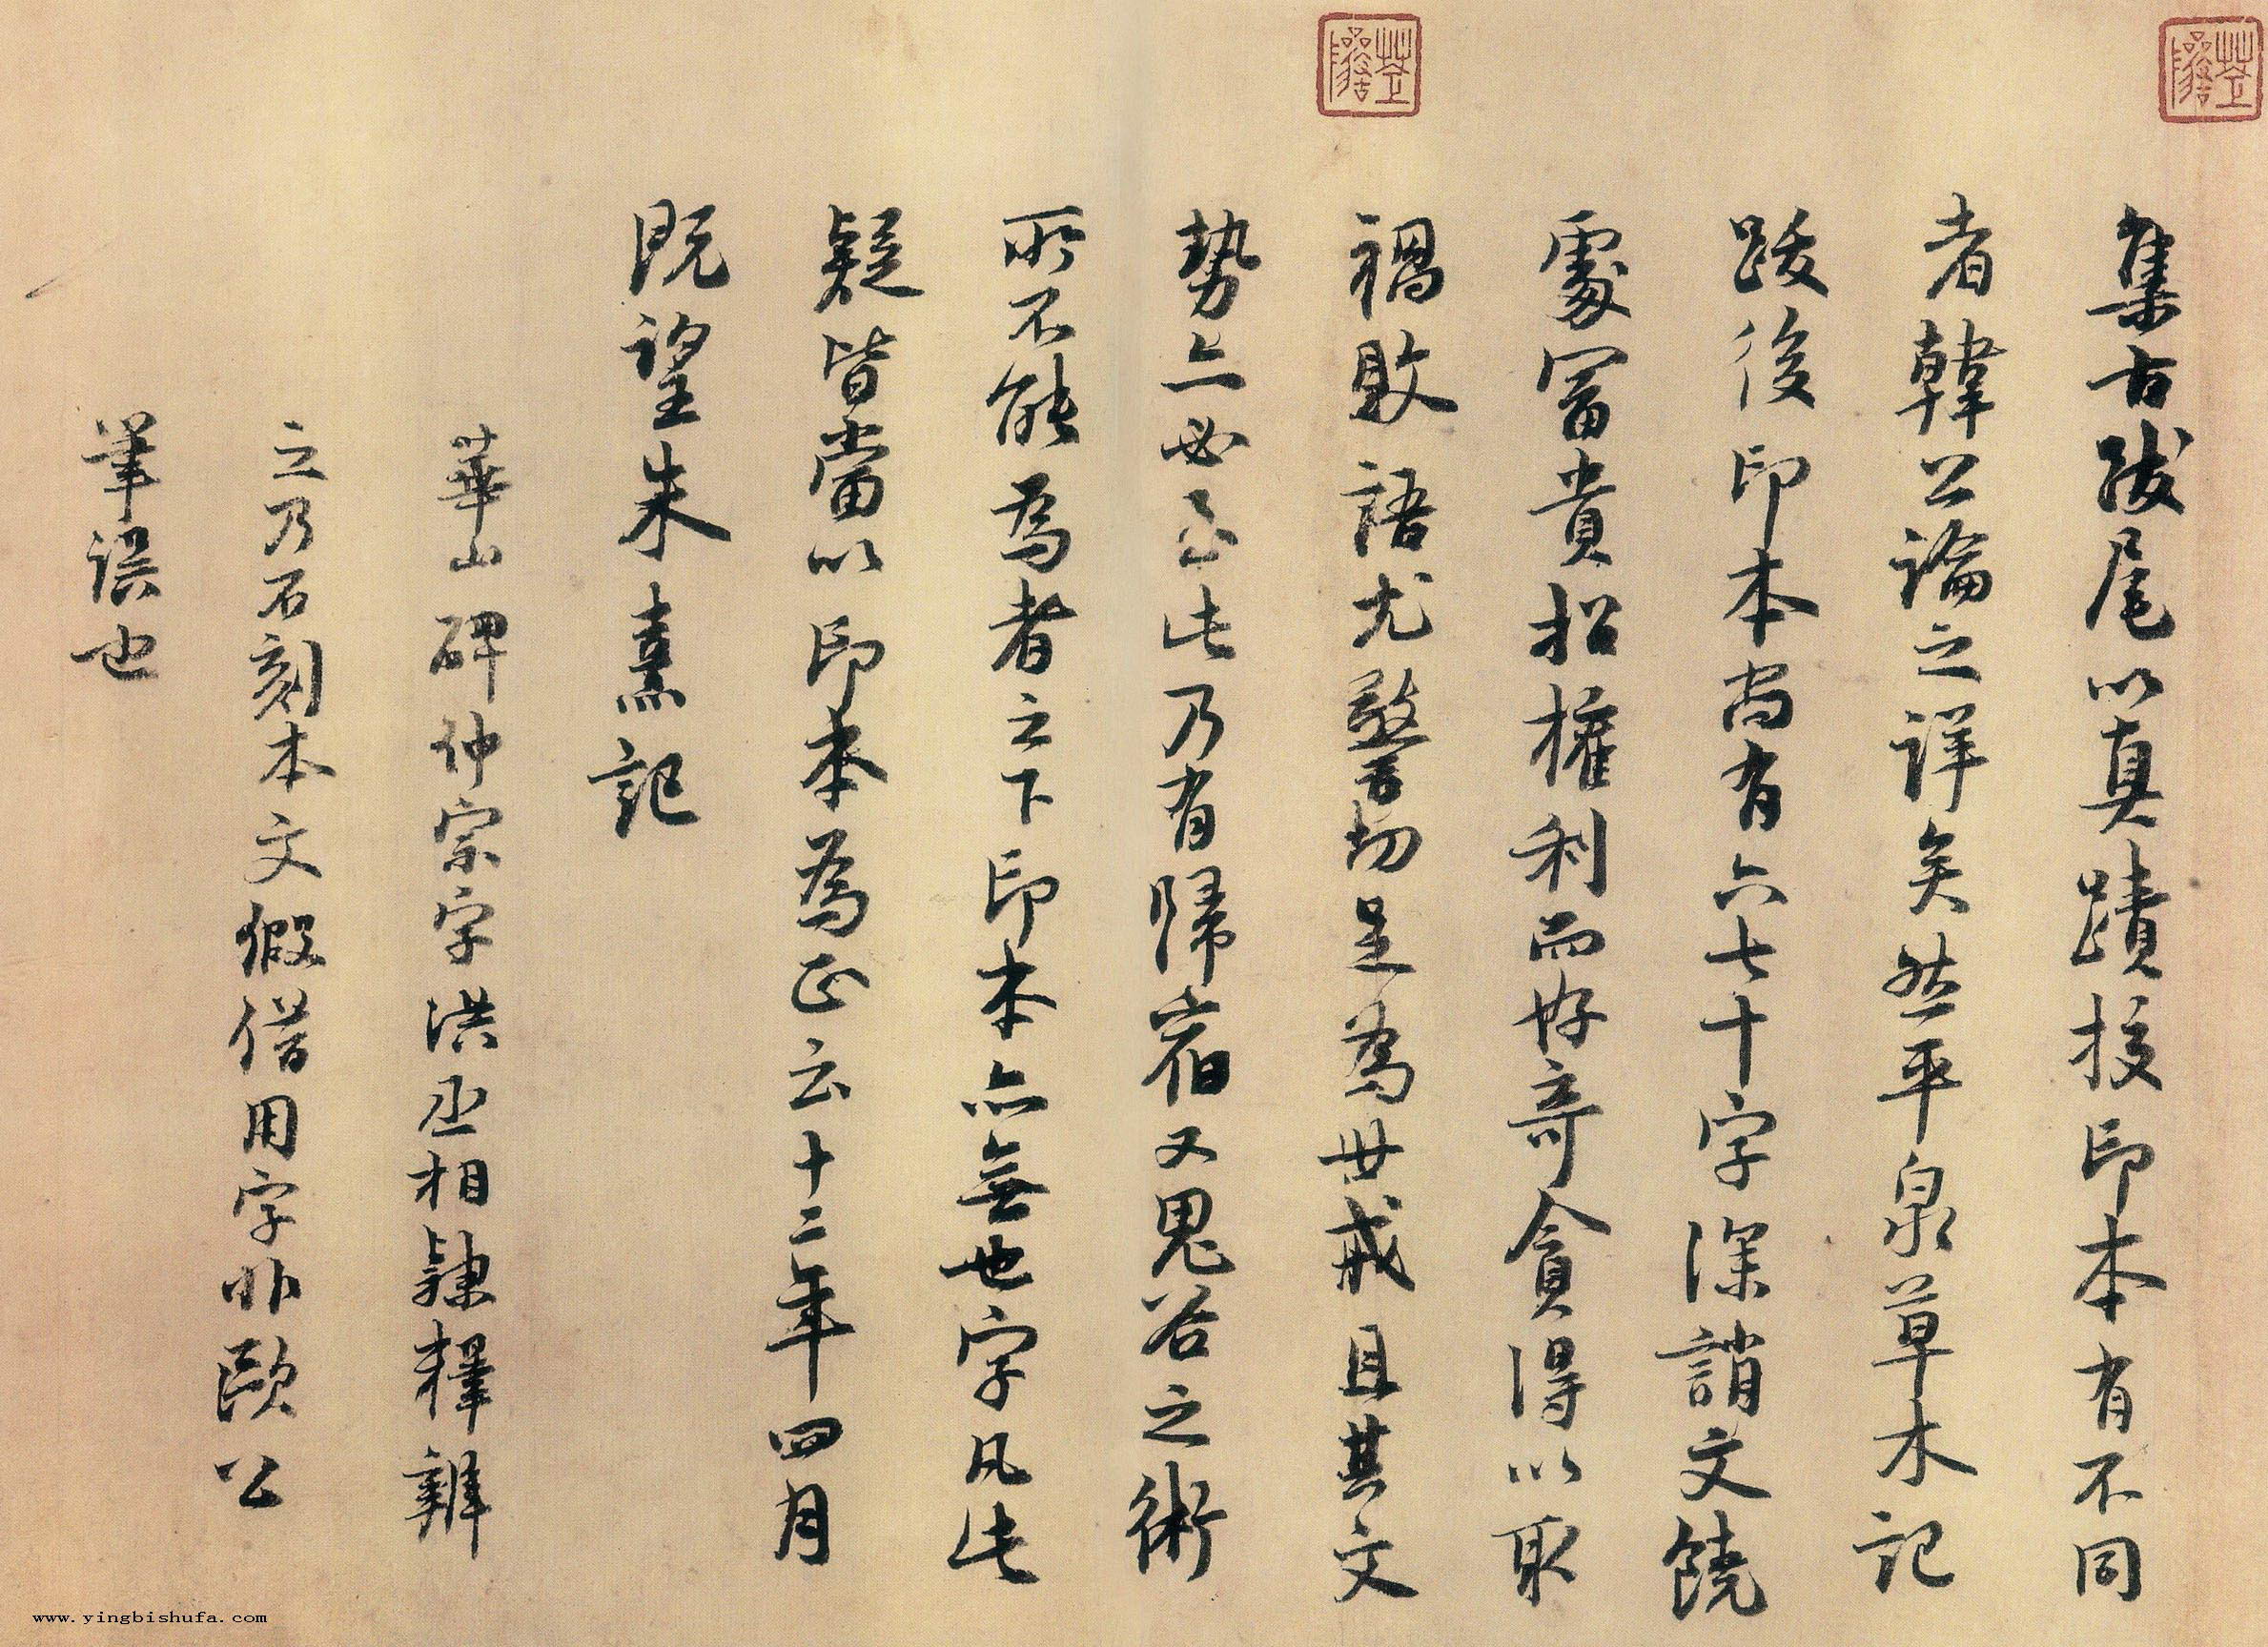 集古跋尾以真蹟校印本有不同
者韓公論之詳矣然平泉草木記
跋後印本尚有六七十字深誚文饒
處富貴招權利而好奇貪得以取
禍敗語尤警切足為世戒且其文
勢亦必至此乃有歸宿又鬼谷之術
所不能為者之下印本亦無也字凡此
疑皆當以印本為正云十二年四月
既望朱熹記
華山碑仲宗字洪丞相隸釋辨
之乃石刻本文假借用字非歐公
筆誤也
www.yingbishufa.com